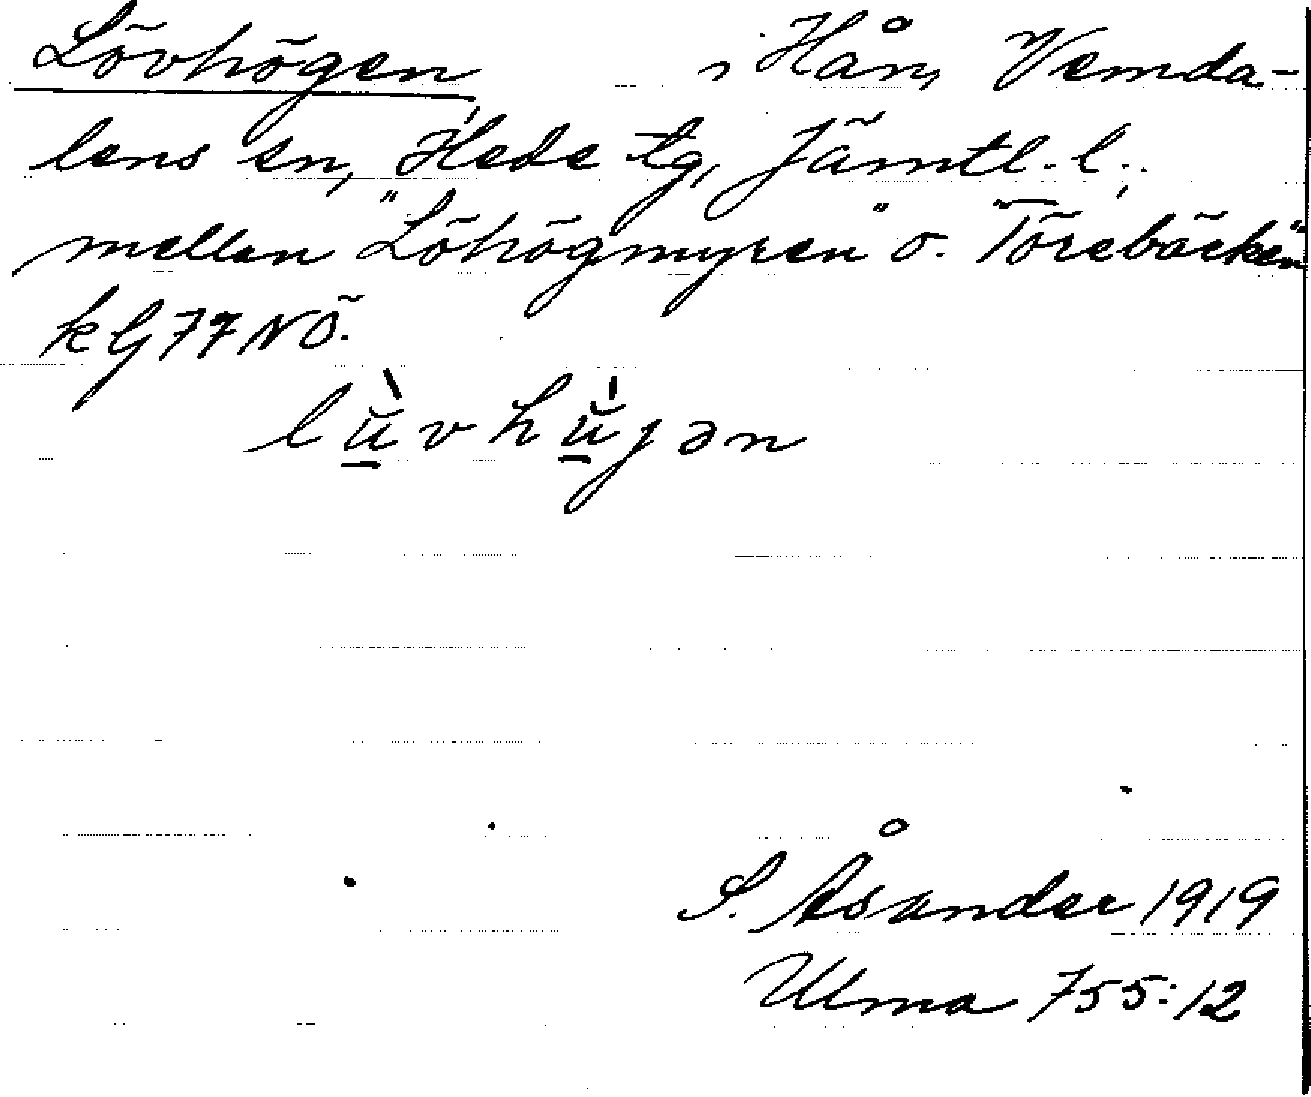 Lövhögen, i Hån, Vemda-
lens sn, Hede tg, Jämtl. l.;
mellan "Löhögmyren" o. "Törebäcken"
kG77NÖ.
lu̠̇̀vhu̠̇́jən
S. Åsander 1919
Ulma 755:12